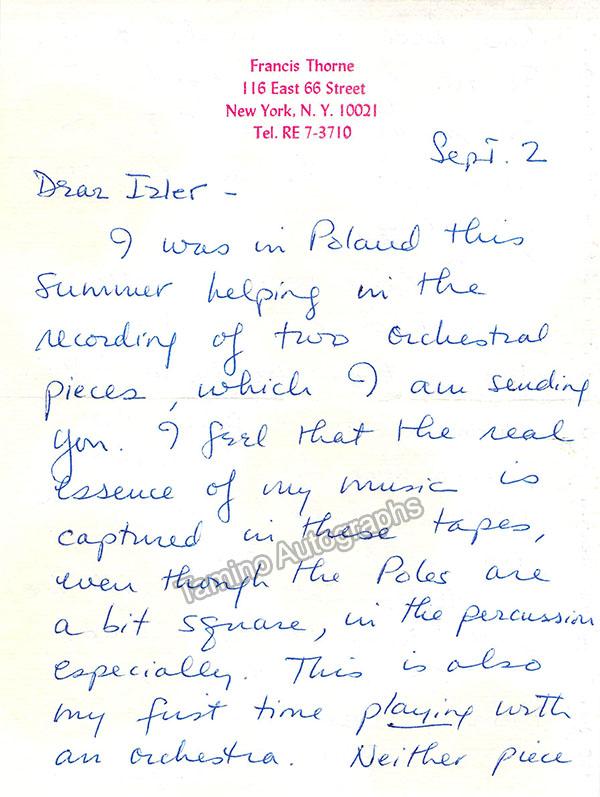 Francis Thorne
116 East 66 Street
New York, N. Y. 10021
Tel. RE 7-3710
Sept. 2
Dear Izler -
I was in Poland this
Summer helping in the
recording of two orchestral
pieces, which I am sending
you. I feel that the real
essence of my music is
captured in these tapes,
even though the Poles are
a bit square, in the percussion
especially. This is also
my first time playing with
an orchestra. Neither piece
Tamino Autographs